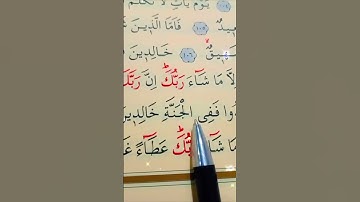 يَوْمَ يَأْتِ لَا تَكَلَّمُ
فَاَمَّا الَّذ۪ينَ
شَه۪يقٌۙ ﴿١٠٦﴾ خَالِد۪ينَ
اِلَّا مَا شَٓاءَ رَبُّكَۜ اِنَّ رَبَّكَ
فَفِي الْجَنَّةِ خَالِد۪ينَ
مَا شَٓاءَ رَبُّكَۜ عَطَٓاءً